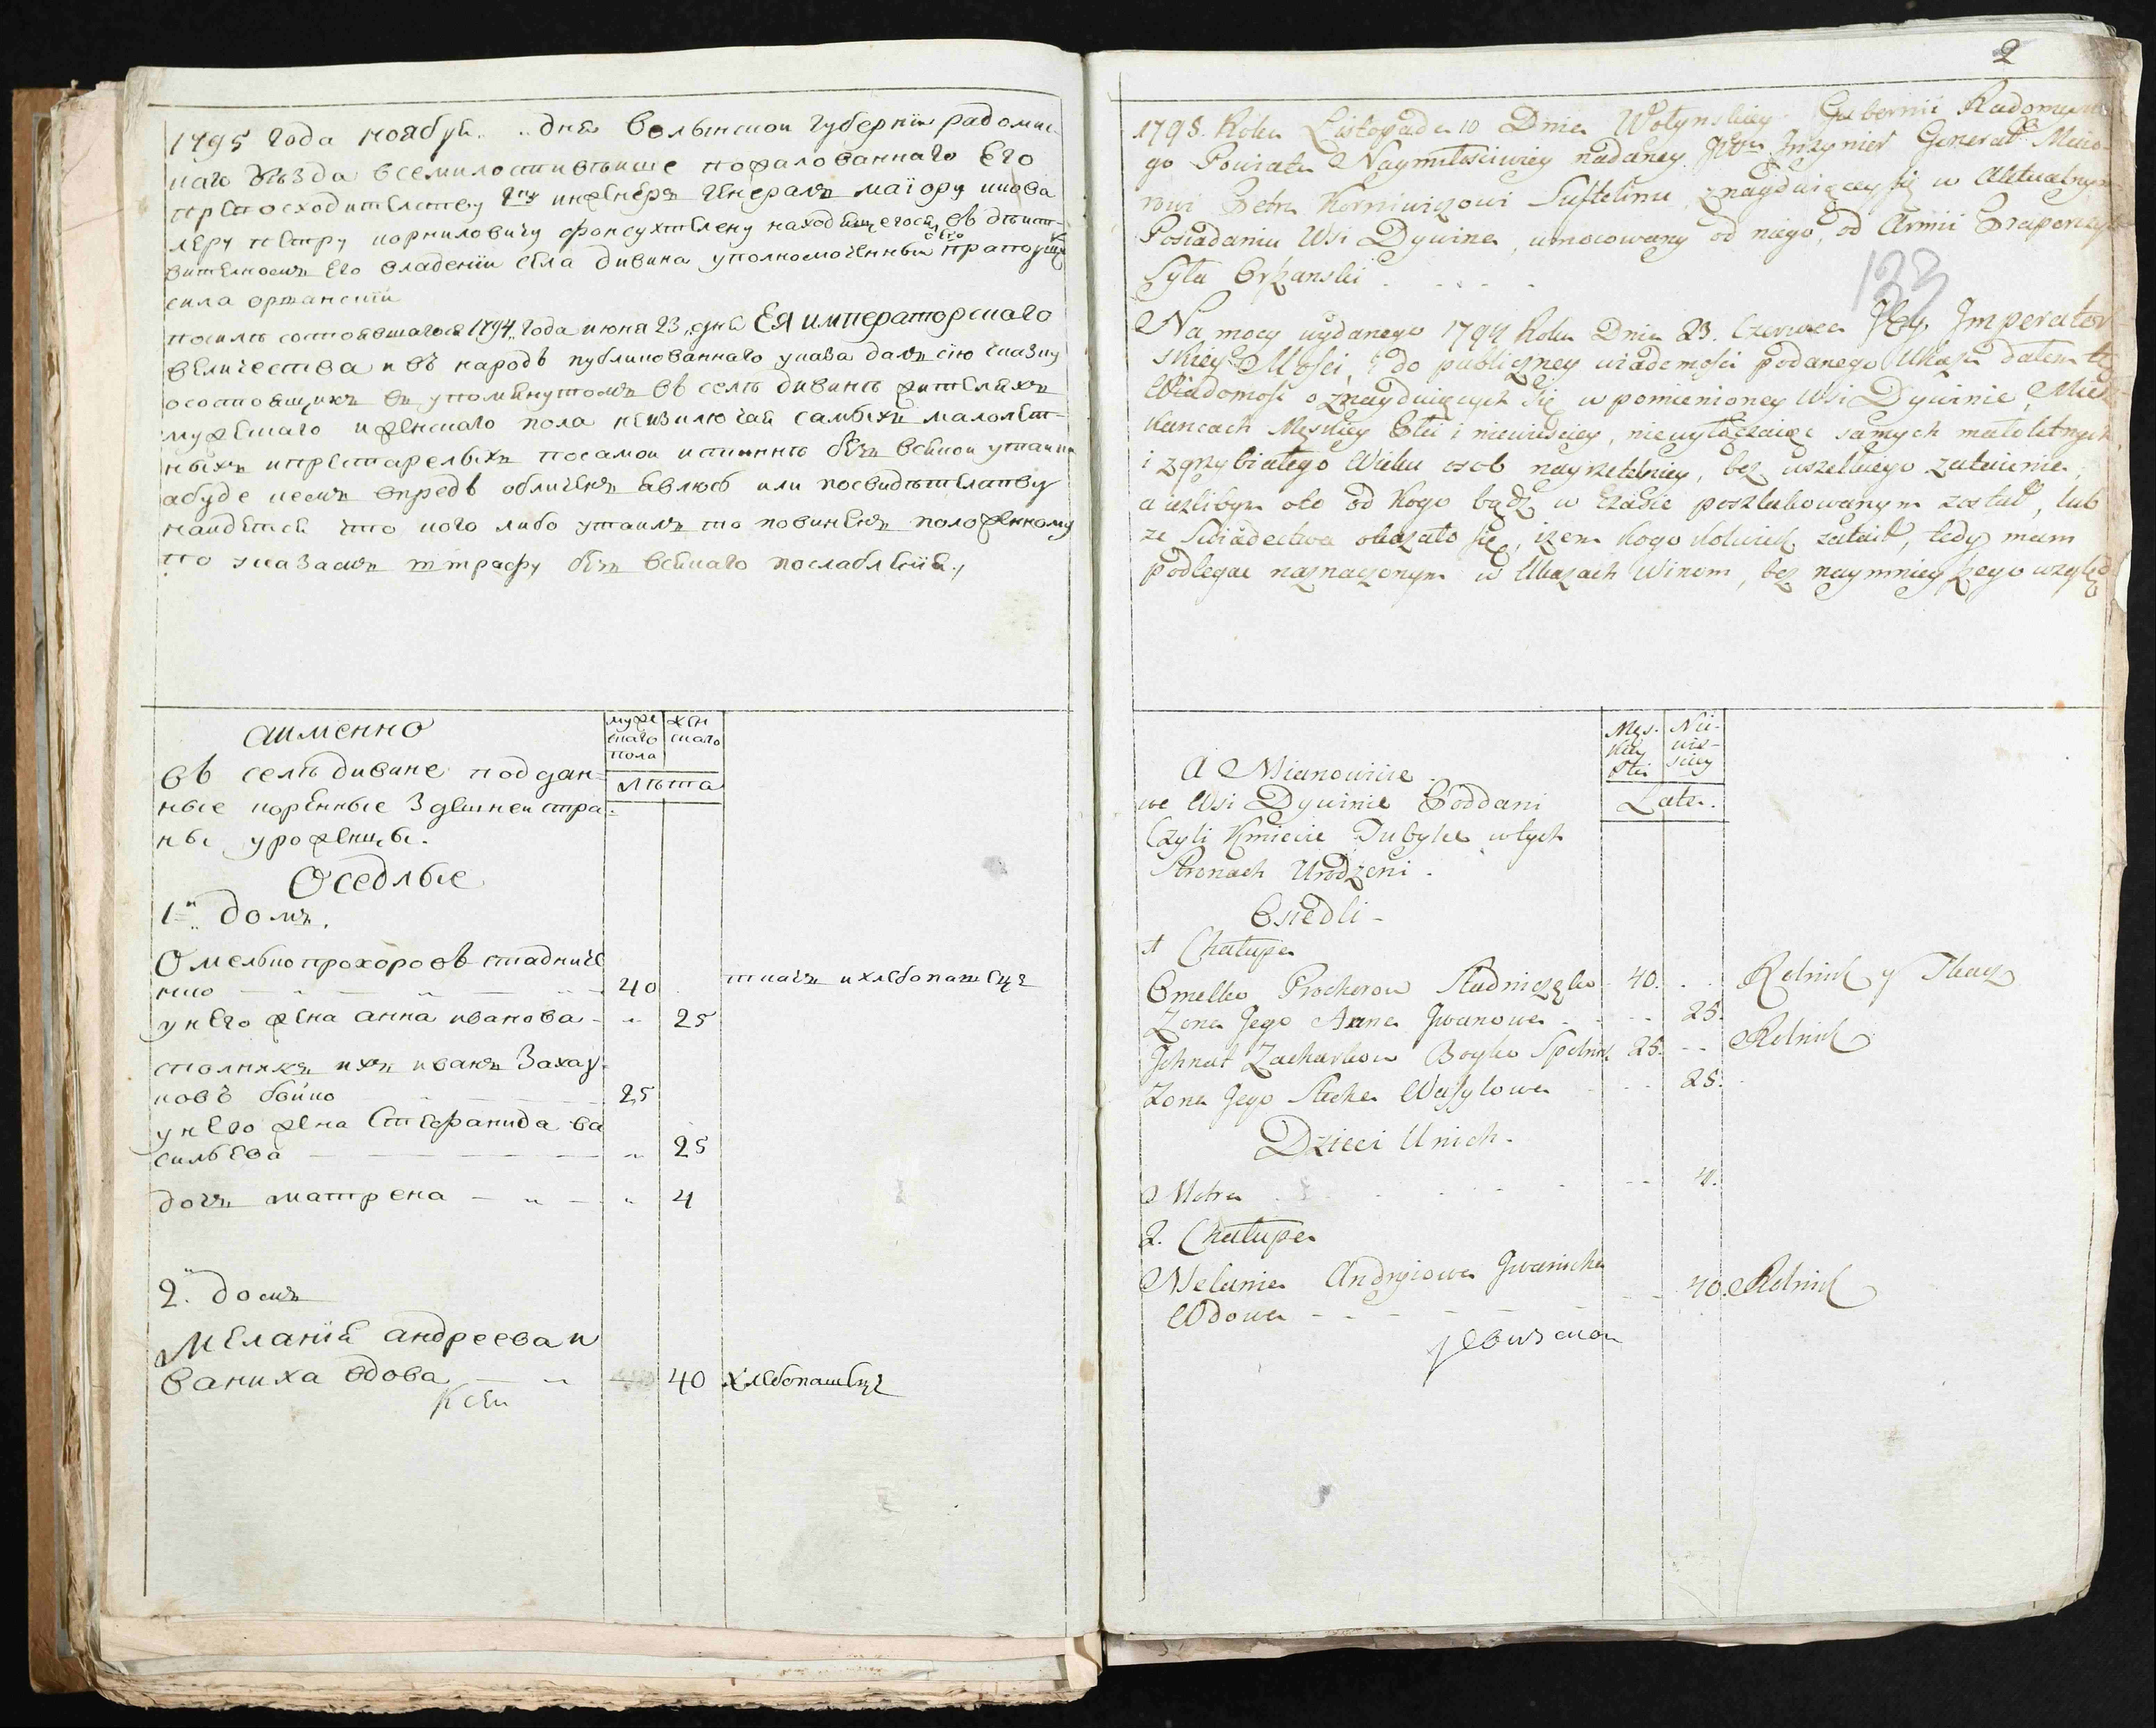 1795 года ноября .. дня Волынской губернїи радомис-
лскаго уѣзда всемилостивѣише пожалованнаго Его
превосходителству Гну инженеръ генералъ маїору
петру корниловичу фонсухтелену находящегося въ дѣист-
вителномъ Его владенїи села дивина уполномоченныи от него прапорщикъ
сила оржанскїи
посилѣ состоявшагося 1794 года июня 23 дня ЕЯ императорскаго
величества и въ народъ публикованнаго указа далъ сїю сказку
осостоящихъ въ упомянутомъ въ селѣ дивинѣ жителяхъ
мужескаго иженскаго пола неизключая самыхъ малолет-
ныхъ ипрестарелыхъ посамои истиннѣ безъ всякои утаики
абуде кемъ впредь обличенъ явлюсь или посвидѣтелству
наидется что кого либо утаилъ то повиненъ положенному
по указамъ штрафу безъ всякаго послабленїя.
аименно
муже
скаго
пола
жен
скаго
лѣта
въ селѣ дивине поддан-
ные коренные Здешнеи стра-
ны уроженцы.
Оседлые
1й домъ.
Омелько прохоровъ стадниче
нко 40 ткачь ихлебопашецъ
унего жена анна иванова - 25
столникъ ихъ иванъ Захар
ковъ бойко 25
унего жена Стефанида ва
сильева 25
дочь матрена 4
2. домъ
Меланїя андреева и
ваниха вдова 40 хлебопашецъ
Ксеи
2
1795. Roku Listopada 10 Dnia Wołynskiey Gubernii Radomysls
go Powiatu Naymiłosciwiey nadaney JWu Inzynier Generał Maio-
rowi Petru Korniwiczowi Suftelinu, znayduiącey się w Aktualnym
Posiadaniu Wsi Dywina, umocowany od niego, od Armii Praporszczyk
Syła Orżanski
133
Na mocy wydanego 1794 Roku Dnia 23. Czerwca Jey Imperator
skiey Mości, i do publiczney wiadomości podanego Ukazu dałem tę
Wiadomość o znayduiących się w pomienioney Wsi Dywinie, Miesz
kancach Męskiey Płci i niewieściey, niewyłączaiąc samych małoletnych
i zgrzybiałego Wieku osob nayrzetelniey, bez wszelkiego zataienia,
a ieżlibym oto od kogo bądz w czasie poszlakowanym został, lub
ze Swiadectwa okazało się, iżem kogo kolwiek zataił, tedy mam
podlegac naznaczonym w Ukazach Winom, bez naymnieyszego względ
A Mianowicie.
Męs-
kiey
Płci
Nie-
wie-
sciey
Lata.
we Wsi Dywinie Poddani
Czyli Kmiecie Tubylce w tych
Stronach Urodzeni.
Osiedli -
1 Chałupa
Omelko Prochorow Stadniczęko 40. Rolnik y Tkacz
Zona Jego Anna Jwanowa 25.
Jhnat Zacharkow Boyko Spolnik 25. Rolnik
Zona Jego Stecha Wasylowa 25.
Dzieci Unich.
Motra 4.
2. Chałupa
Melania Andryiowa Jwanicha
Wdowa 40. Rolnik